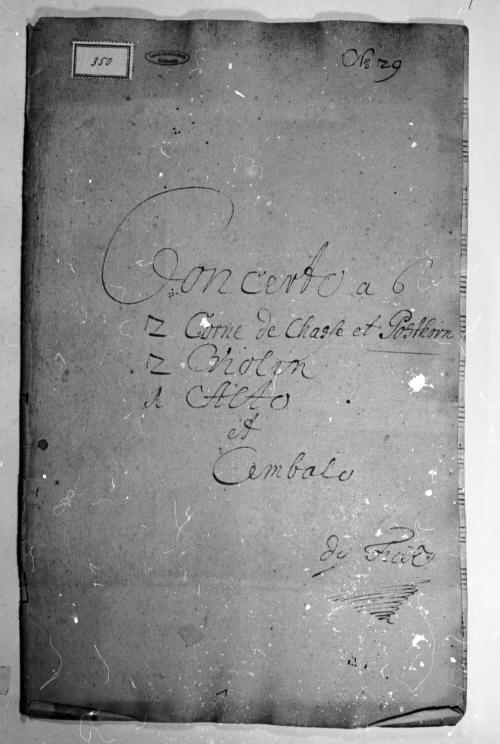 350
No 29
Concerto a 6
2 Corne de Chasse et Posthorn
2 Violin
1 Alto
et
Cembalo